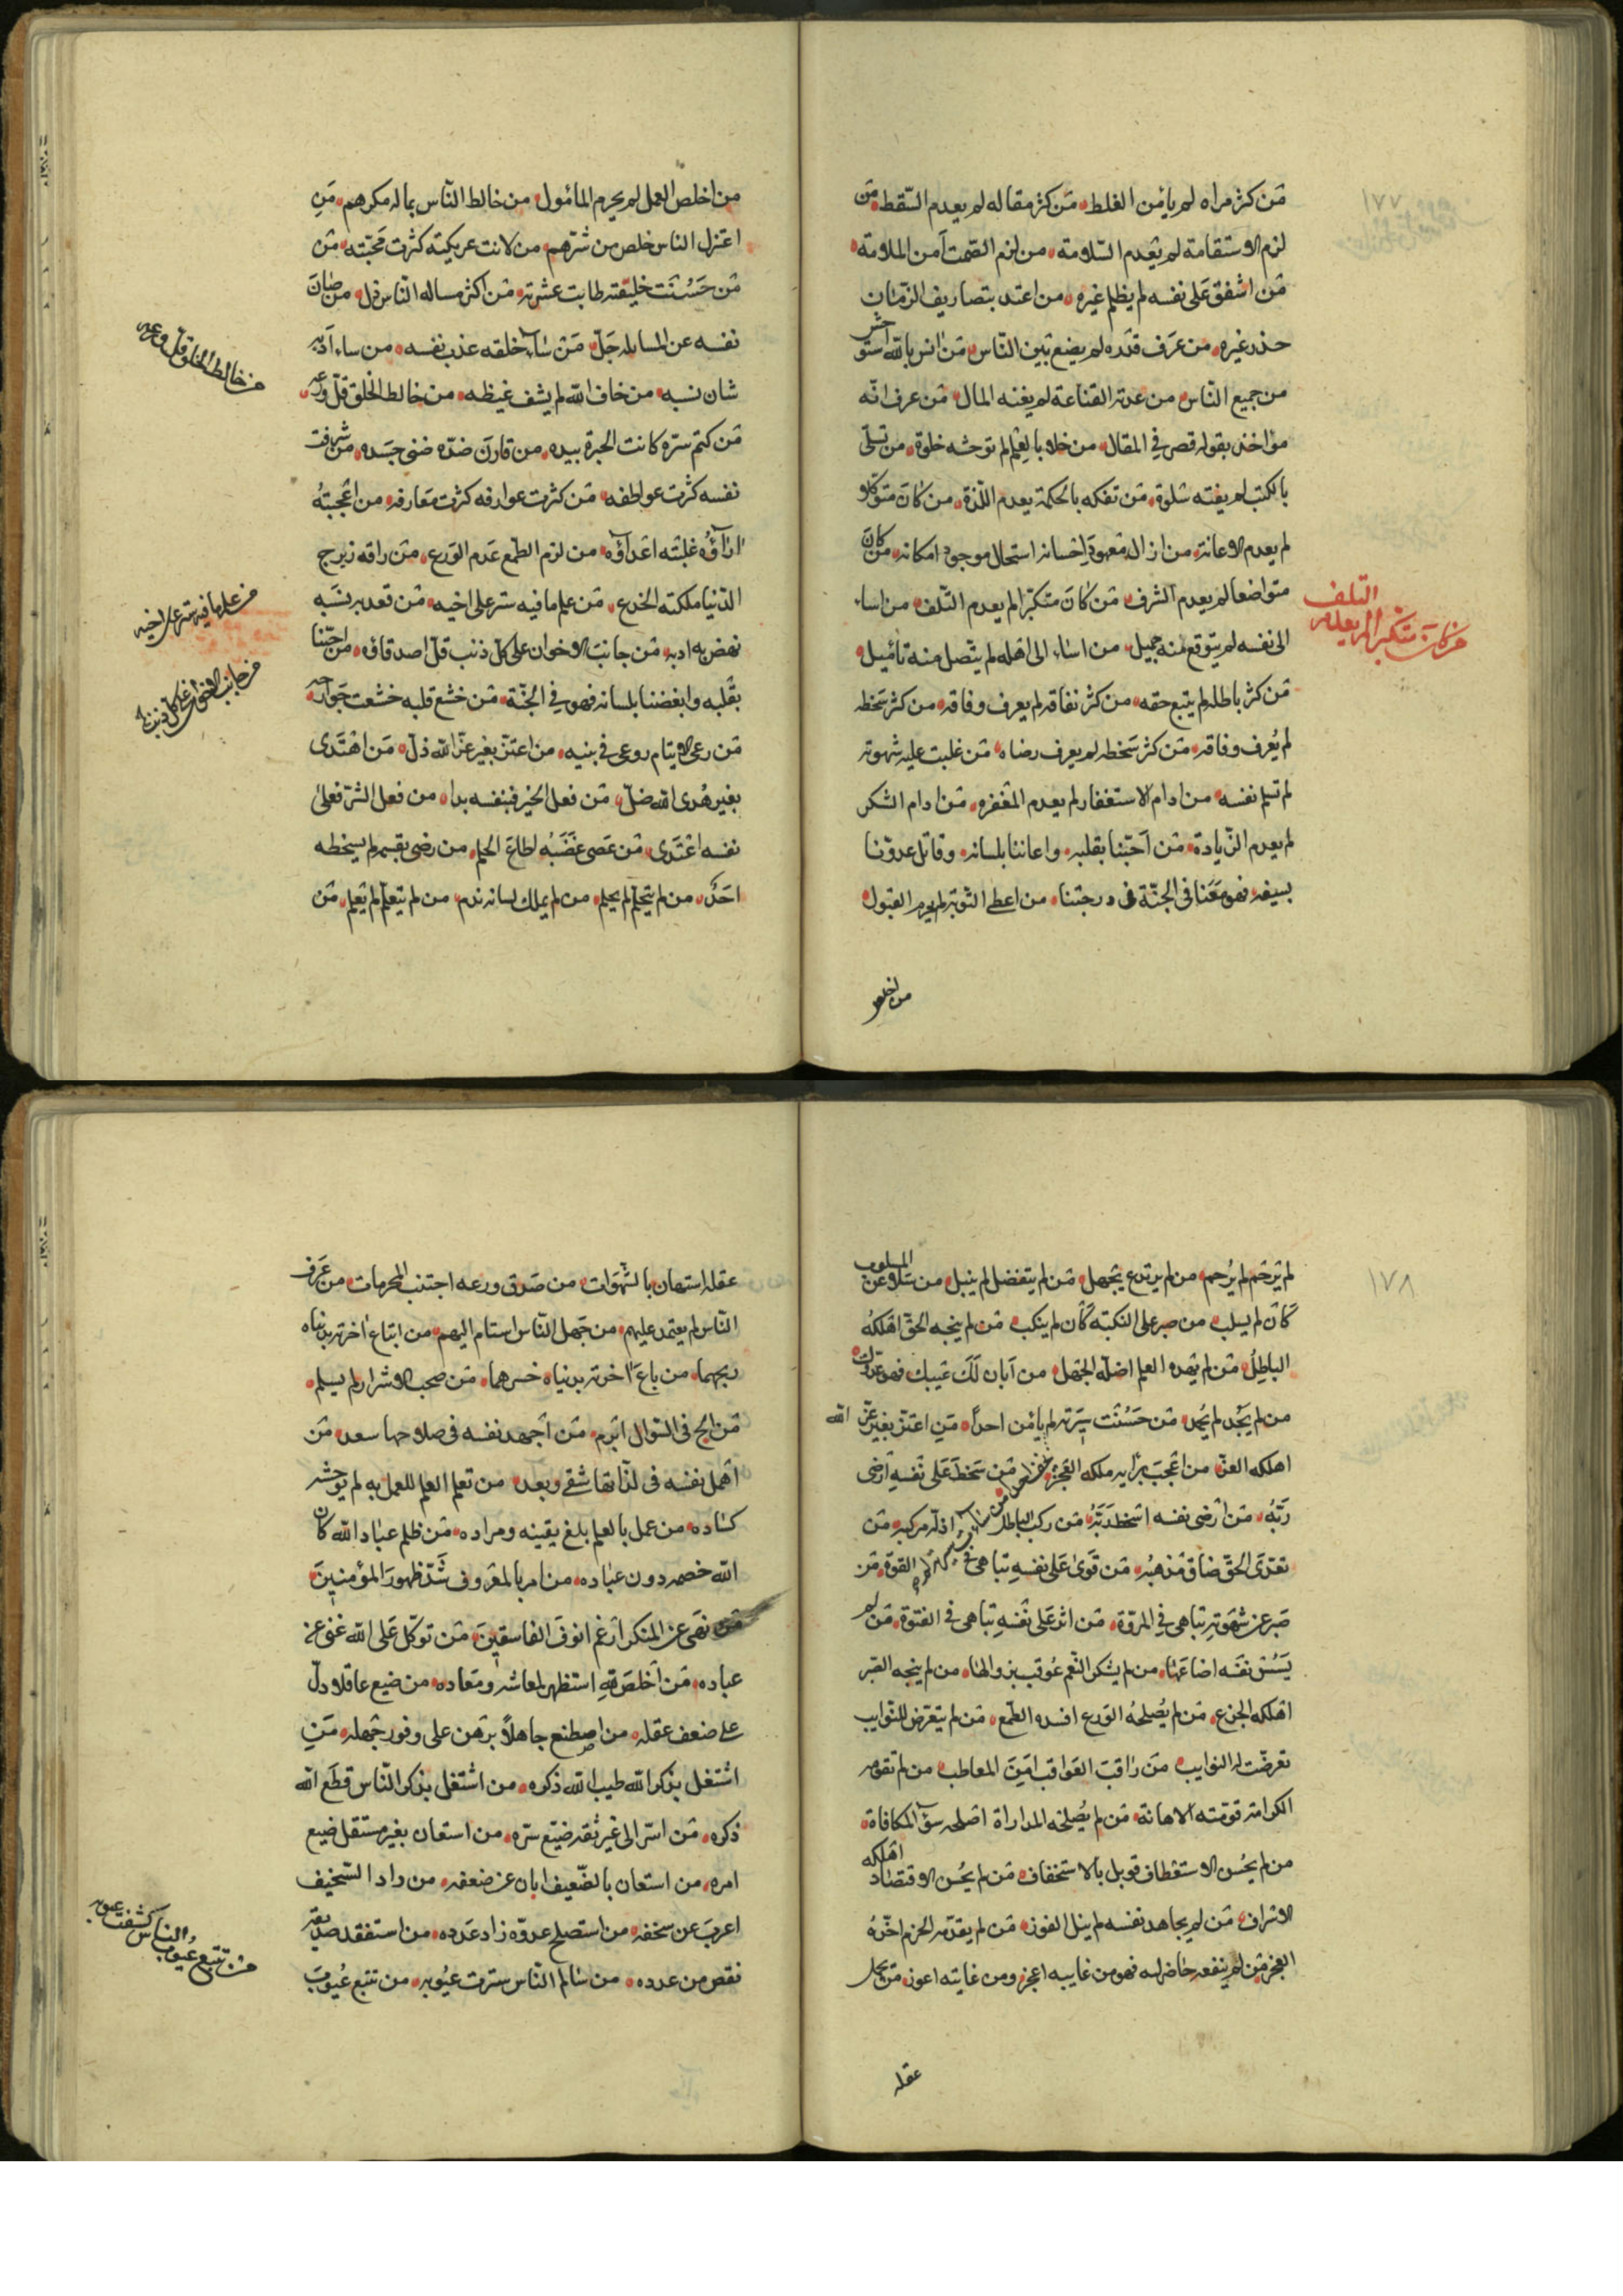 ١٧٧
من كثر مراه لم يأمن الغلط من كثر مقاله لم يعدم السّقط من
لزم الاستقامة لم يعدم السّلامة من لزم الصّمت آمن الملامة
من اشفق على نفسه لم يظلم غيره من اعتد بتصاريف الزمان
حذر غيره من عرف قدره لم يضع بين النّاس من انس بالله استوحش
من جميع النّاس من عدته القناعة لم يغنه المال من عرف انّه
مؤاخذ بقوله قصر في المقال من خلا بالعلم لم توحشه خلوة من تسلّى
بالكتب لم يفته سلوة من تفكه بالحكمة لم يعدم اللّذة من كان متوكلا
لم يعدم الاعانة من ازال معهود احسانه استحال موجود امكانه من كان
متواضعا لم يعدم الشرف من كان متكبّرا لم يعدم التّلف من اساء
الى نفسه لم يتوقع منه جميل من اساء الى اهله لم يتّصل منه تأميل
من كثر باطله لم يتبع حقه من كثر نفاقه لم يعرف وفاقه من كثر سخطه
لم يُعرف وفاقه من كثر سخطه لم يعرف رضاه من غلبت عليه شهوته
لم تسلم نفسه من ادام الاستغفار لم يعدم المغفرة من ادام الشكر
لم يعدم الزّيادة من احَبّنا بقلبه واعاننا بلسانه وقاتل عدوّنا
بسيفه فهو معنا في الجنّة فى درجتنا من اعطى التوبة لم يحرم القبول
التلف
من كان متكبرا لم يعدم
من اخلص
من اخلص العمل لم يحرم المأمول من خالط النّاس بماله مكرهم مَنِ
اعتزل الناس خلص من شرّهم من لانت عريكته كثرت محَبّته من
من حَسُنَت خليقته طابت عشرته من اكثر مساله النّاس ذل من صَانَ
نفسه عن المسايل جَلّ مَن ساء خلقه عذب نفسه من ساء ادَبه
شان نسبه من خاف الله لم يشف غيظه من خالط الخلق قلّ ورعه
من كتم سرّه كانت الخيرة بيده من قارن ضدّه ضنى جسَده من شرفت
نفسه كثرت عواطفه من كثرت عوارفه كثرت مَعارفه من اعجبتهُ
اراؤُه غلبته اعداؤه من لزم الطّمع عَدم الوَرع من راقه زبرج
الدّنيا ملكته الخدع من علم ما فيه ستر على اخيه من قعد به نسَبه
نهض به ادبه من جانب الاخوان على كلّ ذنب قلّ اصدقاؤه من احبّنا
بقلبه وابغضنا بلسانه فهو في الجنّة من خشع قلبه خشعت جَوارحه
من رعى الايتام روعى في بنيه من اعتزّ بغير عزّ الله ذلّ مَن اهتَدى
بغير هُدى الله ضلّ من فعل الخير فبنفسه بدا من فعل الشرّ فعلىٰ
نفسه اعتَدى من عَصى غضَبَهُ اطاعَ الحلم من رضى بقسمه لم يسخطه
احَدٌ من لم يتحلّم لم يحلم من لم يملك لسانه ندم من لم يتعلّم لم يَعلم من
من خالط الخلق قلّ ورعه
من علم ما فيه ستر على اخيه
من جانب الاخوان على كل ذنب
١٧٨
لم يَرحَم لم يُرحم من لم يرتدع يجهل من لم يتفضل لم ينبل من سَلا عن المسلوب
كَان لم يسلب من صبر على النكبة كأن لم ينكب من لم ينجه الحقّ اهلكهُ
الباطِلُ من لم يهده العلم اضلّه الجهل من اَبان لَكَ عَيبك فهو عدوك
من لم يَجُد لم يُحمد من حَسُنت سيرته لم يأمن احداً مَنِ اعتَزّ بغير عزّ الله
اهلكه العزّ من اعجبَ برَأيه ملكه العَجز من سَخطَ عَلى نفسهِ ارضى
رَبَّهُ من ارضى نفسه اسخط رَبّهُ من ركب الباطل اذلّه مركبه من
تعدّى الحقّ ضاق مَذهبُه من قَوىٰ عَلى نفسهِ تباهى فى القوّة من
صَبر عن شهوته تباهى في المروّة من اثر عَلى نفسهِ تباهى في الفتوّة من لم
يَسُس نفسَه اضاعَهٰا من لم يشكر النّعم عُوقب بزوالها من لم ينجه الصّبر
اهلكه الجزع من لم يُصلحهُ الوَرع افسده الطّمع من لم يتَعرّض للنّوايب
تعرضّت له النوايب مَن رٰاقبَ العَواقب امِنَ المعاطب من لم تقومه
الكرامة قوّمته الاهانة من لم يُصلحه المداراة اصلحه سوء المكافاة
من لم يحُسن الاستعطاف قوبل بالاستخفاف من لم يحُسن الاقتصاد اهلكه
الاسراف من لم يجاهد نفسه لم ينل الفوز من لم يقدّمه الحزم اخّرهُ
العجز من لم ينفعه حَاضر لبه فهو من غايبه اعجز ومن غايته اعوز من كمل
عقله
عقله استهان بالشّهوَات من صَدق ورعه اجتنب المحرمات من عَرفَ
النّاس لم يعتمد عليهم من جَهل النّاس استام اليهم من ابتاع اخرته بدنياه
ربحهما من باعَ اخرته بدنياه خسرهما من صحب الاشرار لم يسلم
من الح فى السّوال ابرم من اجهد نفسه فى صلاحها سعد من
اهمل نفسه فى لذّاتها شقى وبعد من تعلم العلم للعمل به لم يوحشه
كسَاده من عمل بالعلم بلغ يقينه ومراده من ظلم عبٰاد الله كان
الله خصمه دون عبَاده من امر بالمعَروف شَدّ ظهورَ المؤمنِينَ
من نهَى عن المنكر ارغم انوفَ الفاسقِينَ من توَكّل عَلى الله غنى عن
عباده مَن اَخلصَ لله استظهر لمعاشه ومَعاده من ضيع عاقلا دلّ
على ضعف عقله من اصطنع جاهلاً برهن على وفور جهله مَنِ
اشتغل بذكر الله طيب الله ذكره من اشتغل بذكر النّاس قطَع الله
ذكره من اسرّ الى غير ثقة ضيّع سرّه من استعان بغير مستقل ضيع
امره من استعان بالضّعيف ابان عن ضعفه من داد السّخيف
اعربَ عن سخفه من استصلح عدوّه زاد عَدده من استفقد صديقه
نقص من عدده من سٰالم النّاس سترت عيُوبه من تتبع عُيوبَ
من تتبع عُيوب
الناس كشفت عيوبه